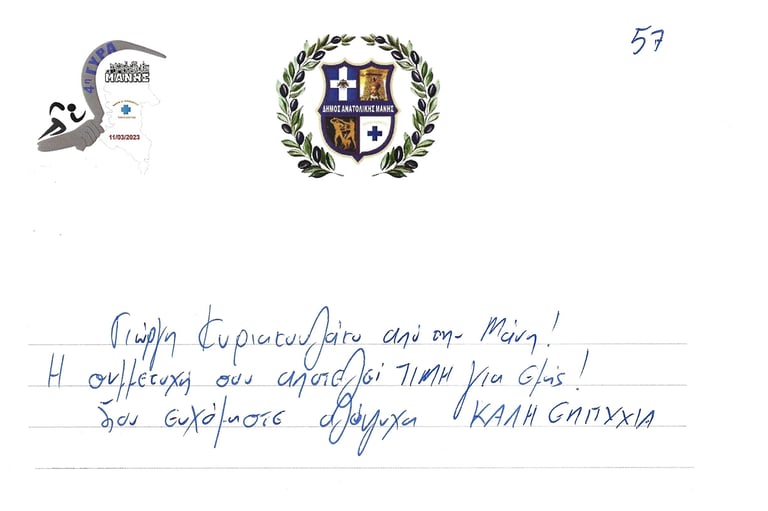 57
4η ΓΥΡΑ
ΜΑΝΗΣ
11/03/2023
ΔΗΜΟΣ ΑΝΑΤΟΛΙΚΗΣ ΜΑΝΗΣ
Γιώργη Κυριακουλάκο από την Μάνη!
Η συμμετοχή σου αποτελεί ΤΙΜΗ για εμάς!
Σου ευχόμαστε ολόψυχα ΚΑΛΗ ΕΠΙΤΥΧΙΑ